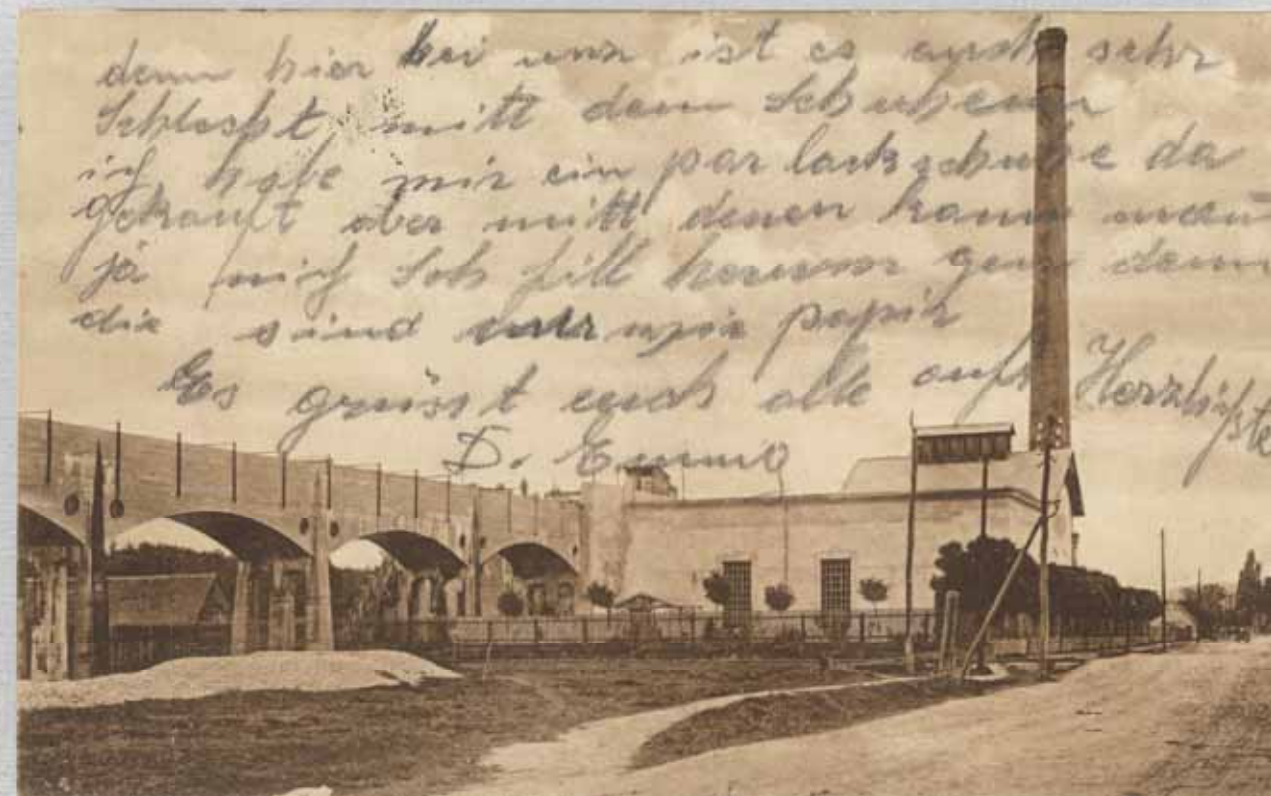 denn hier bei uns ist es auch sehr
Schlecht mitt dem Schuhenn
ich habe mir ein par lackschuhe da
gekauft aber mitt denen kann man
ja nich Soh fill herumm gen denn
die sind nur wie papir
Es grüsst euch alle aufs Herzlichste
D. Emmo